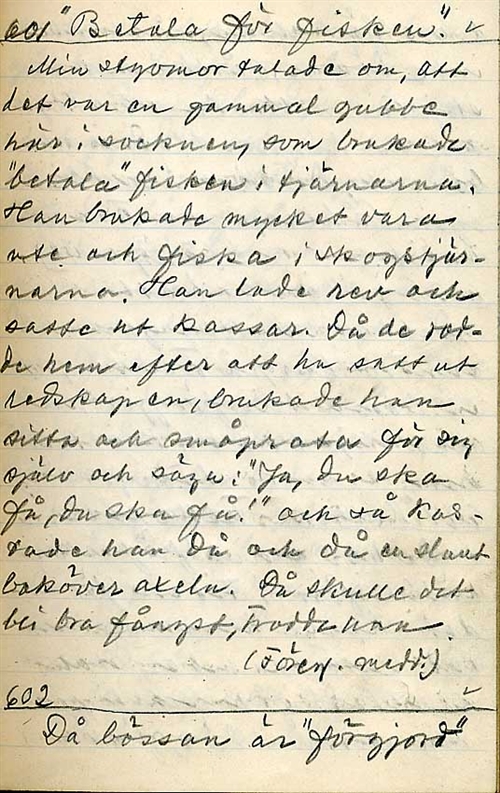 601 "Betala för fisken".
Min styvmor talade om, att
det var en gammal gubbe
här i socknen, som brukade
"betala" fisken i tjärnarna.
Han brukade mycket vara
ute och fiska i skogstjär-
narna. Han lade rev och
satte ut kassar. Då de rod-
de hem efter att ha satt ut
redskapen, brukade han
sitta och småprata för sig
själv och säga: "Ja, du ska
få, du ska få!" och så kas-
tade han då och då en slant
baköver axeln. Då skulle det
bli bra fångst, trodde han.
(Förex. medd.)
602
Då bössan är "förgjord"